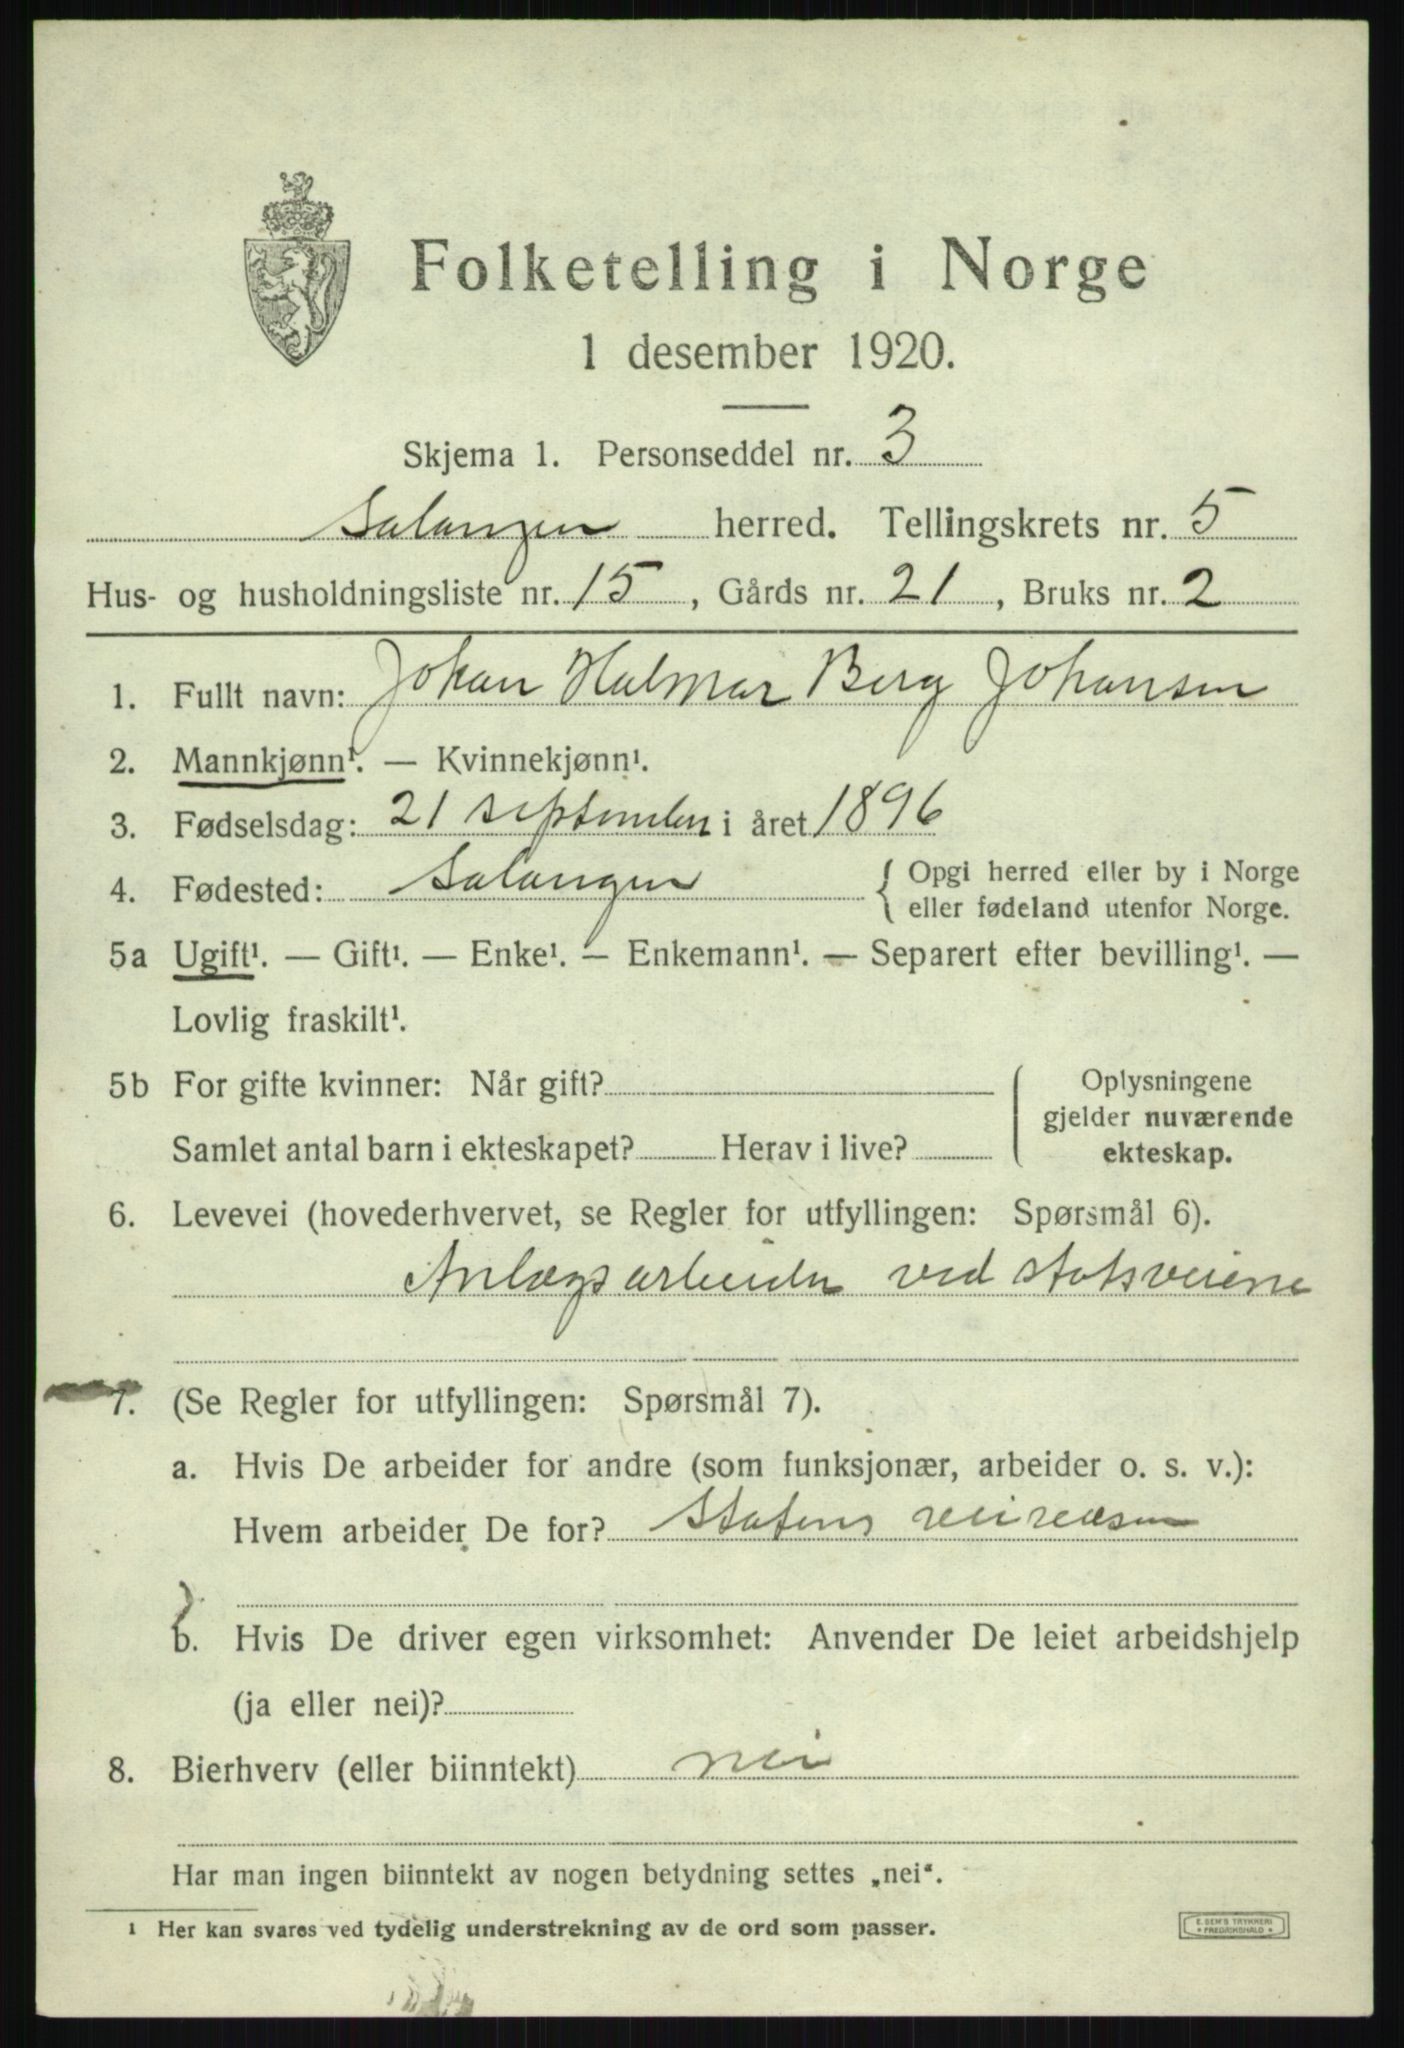 Folketelling i Norge
1 desember 1920.
Skjema 1. Personseddel nr. 3
Salangen herred. Tellingskrets nr. 5
Hus- og husholdningsliste nr. 15, Gårds nr. 21, Bruks nr. 2
1. Fullt navn: Johan Halmar Berg Johansen
2. Mannkjønn¹. — Kvinnekjønn¹.
3. Fødselsdag: 21 september i året 1896
4. Fødested: Salangen { Opgi herred eller by i Norge
eller fødeland utenfor Norge.
5a Ugift¹. — Gift¹. — Enke¹. — Enkemann¹. — Separert efter bevilling¹. —
Lovlig fraskilt¹.
5b For gifte kvinner: Når gift? Oplysningene
gjelder nuværende
Samlet antal barn i ekteskapet? Herav i live? ekteskap.
6. Levevei (hovederhvervet, se Regler for utfyllingen: Spørsmål 6).
Anlægsarbeider ved statsveiene
7. (Se Regler for utfyllingen: Spørsmål 7).
a. Hvis De arbeider for andre (som funksjonær, arbeider o. s. v.):
Hvem arbeider De for? Statens veivæsen
b. Hvis De driver egen virksomhet: Anvender De leiet arbeidshjelp
(ja eller nei)?
8. Bierhverv (eller biinntekt) nei
Har man ingen biinntekt av nogen betydning settes „nei“.
1 Her kan svares ved tydelig understrekning av de ord som passer.
E. SEM'S TRYKKERI
* FREDRIKSHALD *